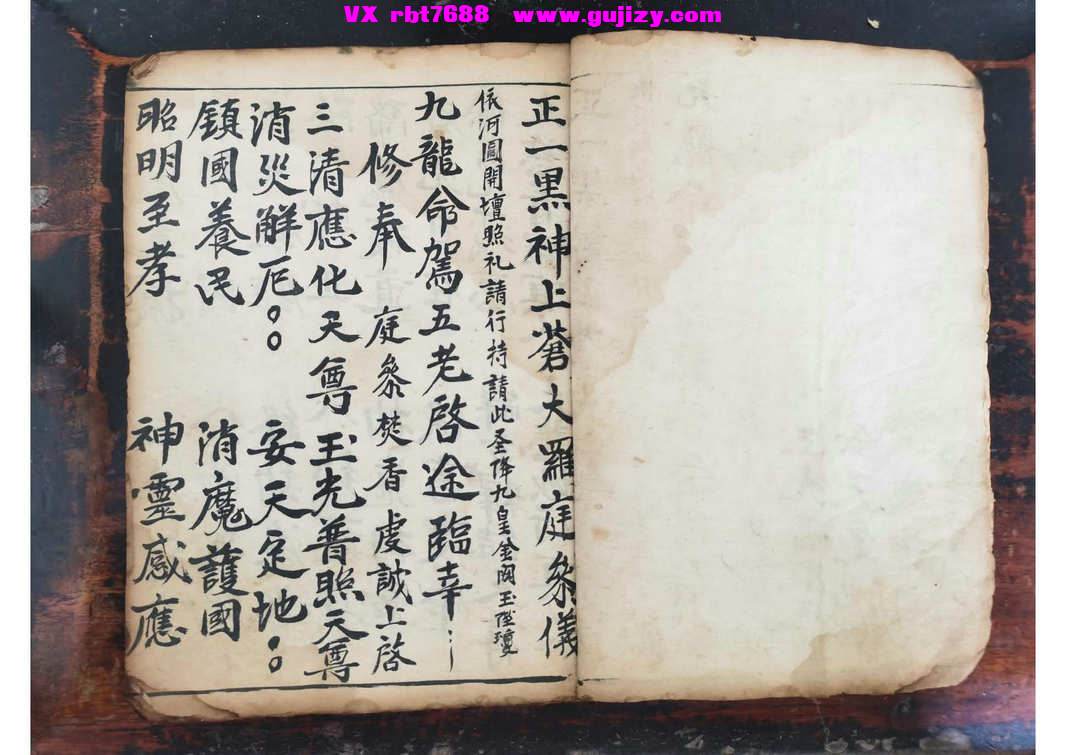 VX rbt7688 www.gujizy.com
正一黑神上蒼大羅庭參儀
依河圓開壇照礼請行持請此圣降九皇金闕玉陛瓊
九龍命駕五老啓途臨幸
修奉 庭參焚香虔誠上啓
三清應化天尊 玉光普照天尊
消災解厄 安天定地
鎮國養民 消魔護國
昭明至孝 神靈感應